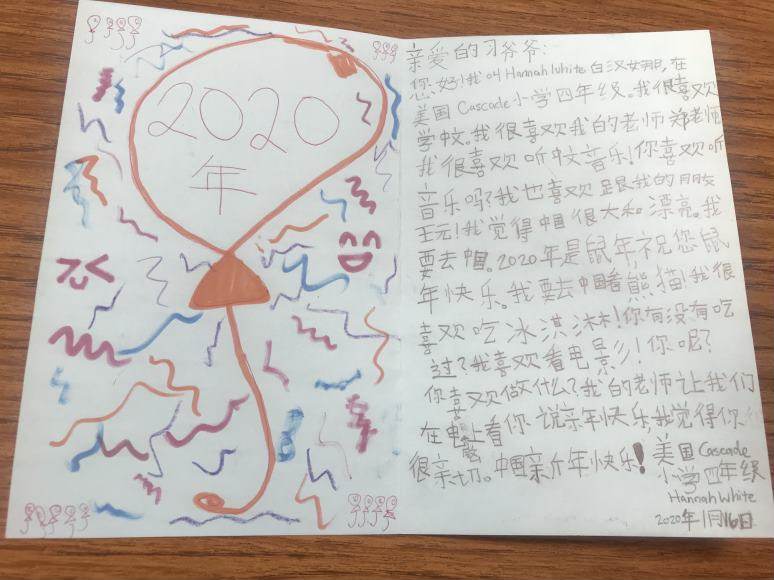 2020
年
亲爱的习爷爷:
您好!我叫 Hannah White 白汉娜,在
美国 Cascade 小学四年级。我很喜欢
学中文。我很喜欢我的老师郑老师
我很喜欢听中文音乐!你喜欢听
音乐吗?我也喜欢跟我的朋友
玩!我觉得中国很大和漂亮。我
要去中国。2020年是鼠年,祝您鼠
年快乐。我要去中国看熊猫!我很
喜欢吃冰淇淋!你有没有吃
过?我喜欢看电影!你呢?
你喜欢做什么?我的老师让我们
在电上看你说亲年快乐,我觉得你
很亲切。中国亲斤年快乐!
美国 Cascade
小学四年级
Hannah White
2020年1月16日